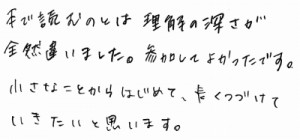 本で読むのとは 理解の深さが
全然違いました。参加してよかったです。
小さなことからはじめて、長くつづけて
いきたいと思います。